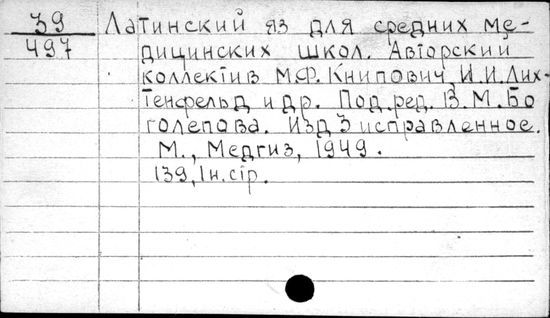 39
497
Латинский яз для средних ме-
дицинских школ. Авторский
коллектив М.Ф. Книпович, И.И. Лих-
тенфельд и др. Под. ред. В.М. Бо
голепова. Изд 3 исправленное.
М., Медгиз, 1949.
139, 1 н. стр.